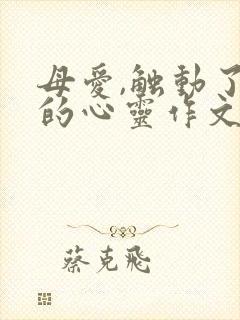 母爱,触动了
的心灵作文
蔡克飛